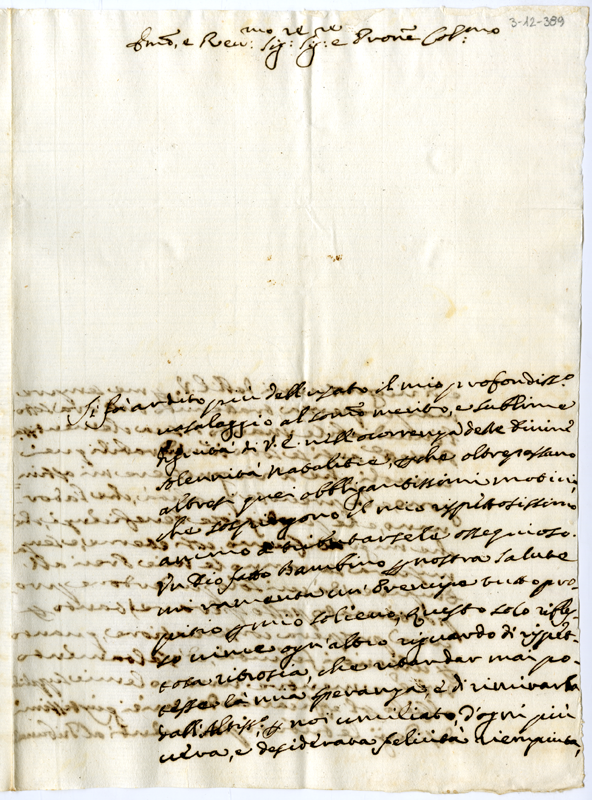 3-12-389
Em̃o, e Rev:mo Sig:re Sig:re e Pron̄e Col:mo
Si fà ardito più dell'usato il mio profondiss.o
vasalaggio al som̃o merito, e sublime
dignità di V. E. nell'ocorrenza delle Divine
solennità Natalitie, che oltrepassano
altresì quei obbligantissimi motivi,
che sospingono il mio rispettosissimo
animo a tributarsele ossequioso.
Un Dio fatto Bambino p nostra salute
mi ramenta un Prencipe tutto pro-
pitio p mio solievo, Questo solo rifles-
so vince ogn'altro riguardo di rispet-
tosa ritrosia, che ritardar mai po-
tesse la mia speranza, e di rimirarla
dall'Altiss.o p noi umiliato, d'ogni più
vera, e desiderata felicità riempiuta,